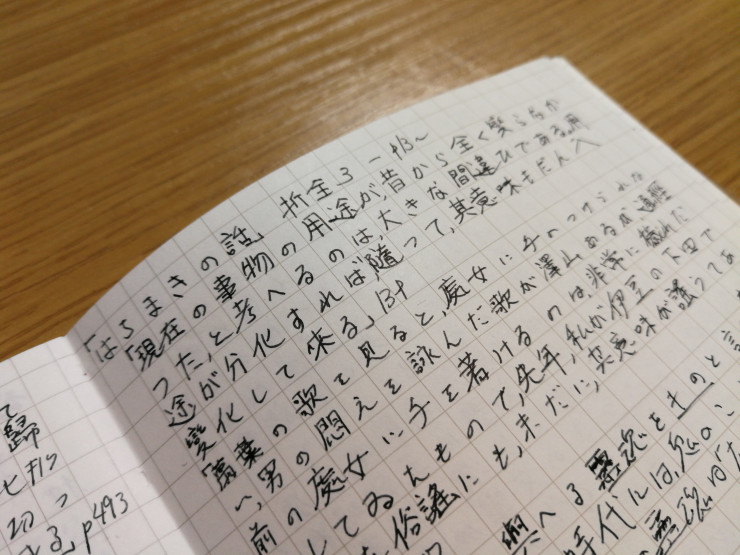 「はちまきの話 折全3-p13〜
「現在の事物の用途が、昔から全く変らなか
つた、と考へるのは、大きな間違ひである。用
途が分化すれば、随つて、其意味もだんへ
変化して来る」p13
「萬葉の歌を見ると、處女に手のつけられな
へ、男の悶えを詠んだ歌が澤山ある。
前の處女に手を著けるのは、非常に穢れた
してゐたもので、先年、私が伊豆の下田で
俗謡にも、未だに、其意味が謡うてあ
與へる霊魂をものと
時代には、鬼のこ
霊魂が
帰
p493